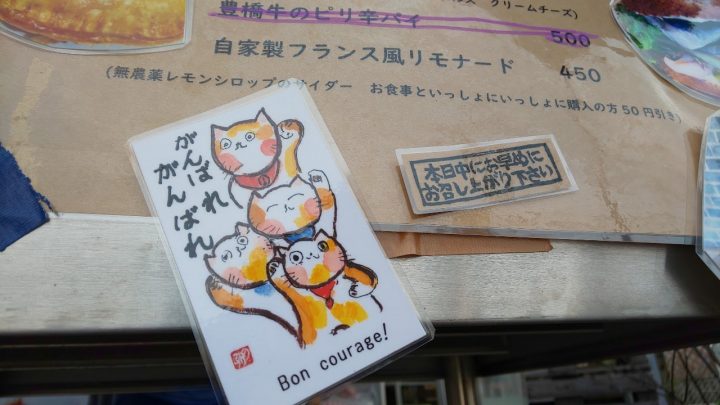 クリームチーズ)
豊橋牛のピリ辛パイ 500
自家製フランス風リモナード 450
(無農薬レモンシロップのサイダー お食事といっしょにいっしょに購入の方50円引き)
がんばれ
がんばれ
Bon courage!
本日中にお早めに
お召し上がり下さい